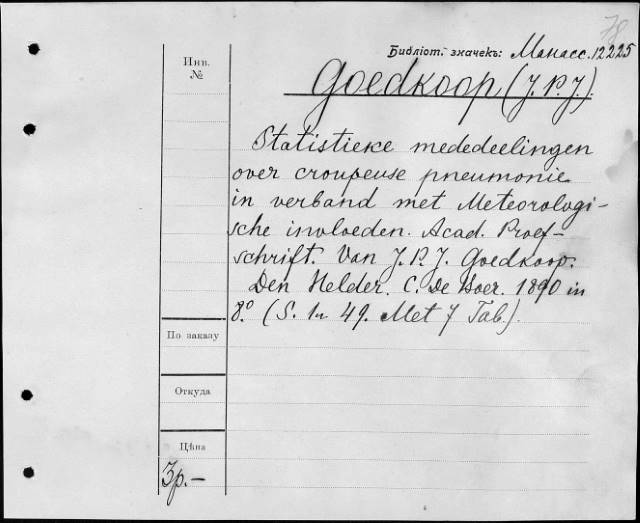 78
Библіот. значекъ: Манасс. 12225
Инв.
№
Goedkoop (J. P. J.).
Statistieke mededeelingen
over croupeuse pneumonie
in verband met Meteorologi-
sche invloeden. Acad. Proef-
schrift. Van J. P. J. Goedkoop.
Den Helder. C. De Boer. 1890 in
8.° (S. 1 49. Met 7 Tab.).
По заказу
Откуда
Цѣна
3р.—